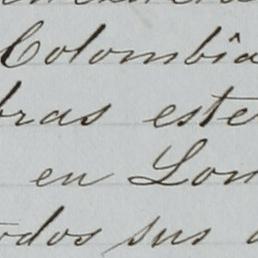 Colombia
bras este
en Lon
todos sus